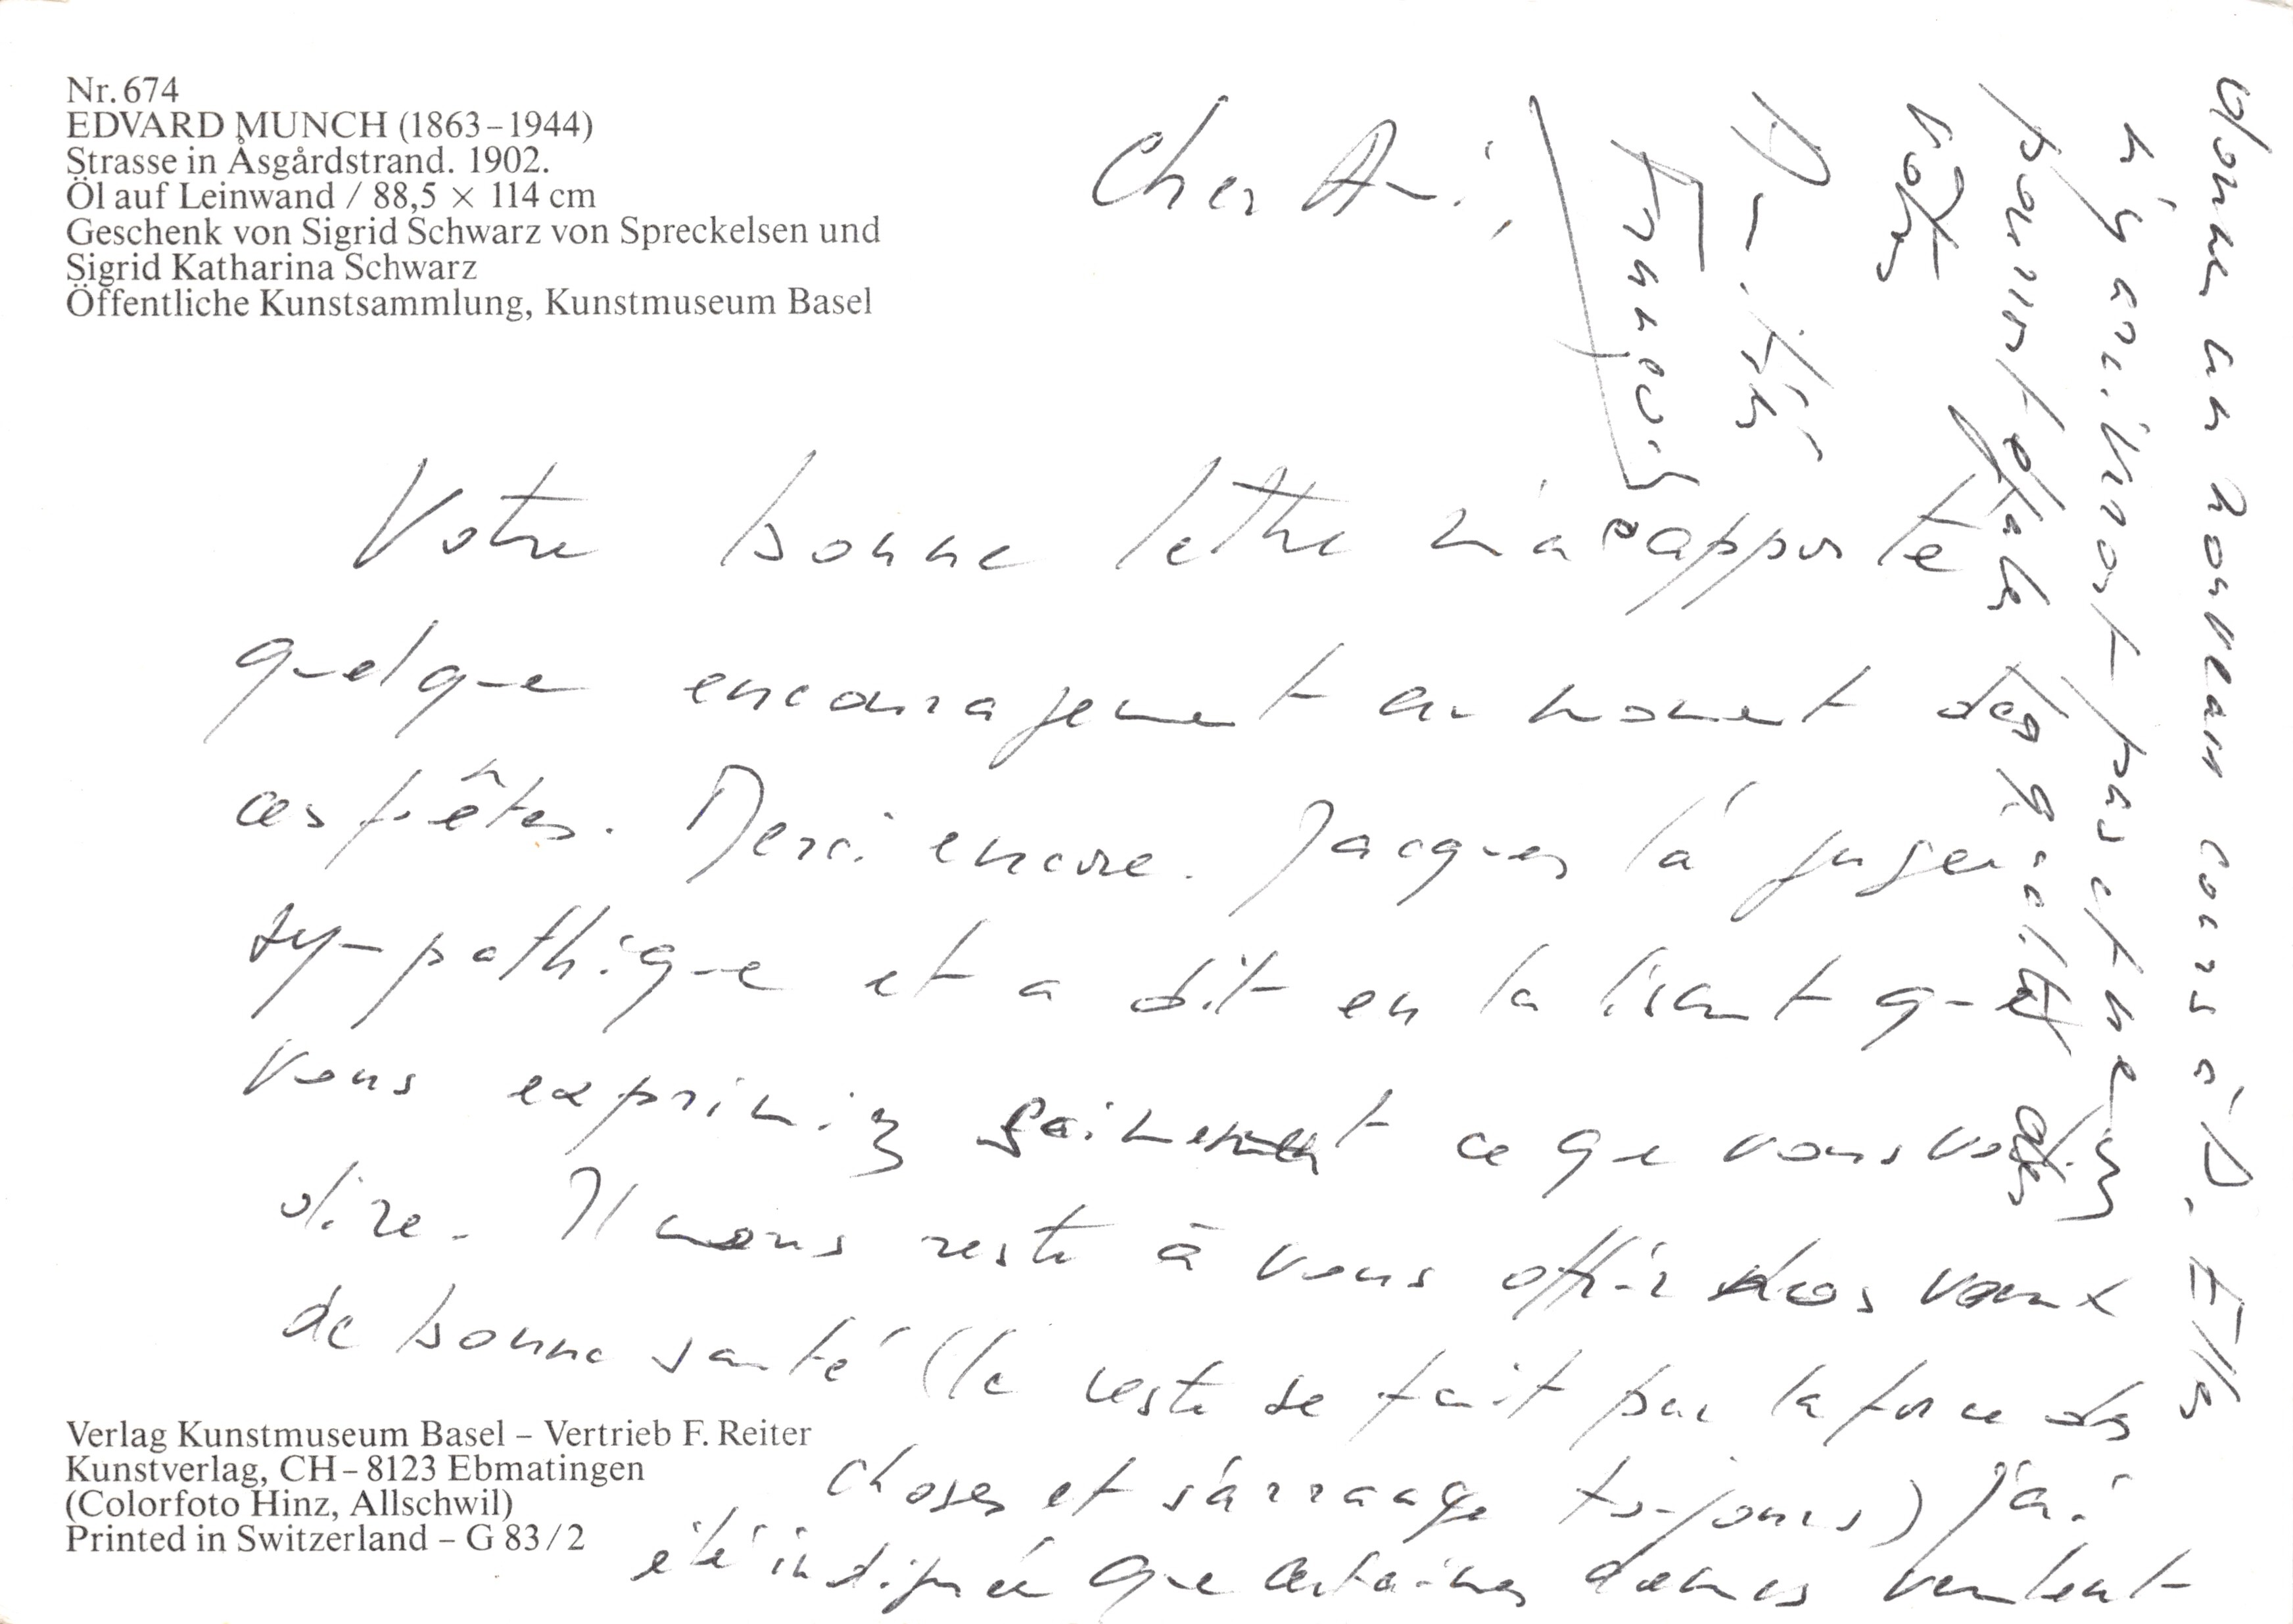 Nr. 674
EDVARD MUNCH (1863–1944)
Strasse in Åsgårdstrand. 1902.
Öl auf Leinwand / 88,5 × 114 cm
Geschenk von Sigrid Schwarz von Spreckelsen und
Sigrid Katharina Schwarz
Öffentliche Kunstsammlung, Kunstmuseum Basel
Cher Ami,
Votre bonne lettre m'a apporté
quelque encouragement au moment de
ces fêtes. Merci encore. Jacques l'a jugée
sympathique et a dit en la lisant que
vous exprimiez gaiment ce que vous vouliez
dire. Il nous reste à vous offrir nos vœux
de bonne santé (le reste se fait par la force des
choses et s'arrange toujours) J'ai
été indignée que certaines dames veulent
donner un nouveau cours à D. Elles
n'y arriveront pas et ne
pas
Votre
Amitiés
Verlag Kunstmuseum Basel – Vertrieb F. Reiter
Kunstverlag, CH–8123 Ebmatingen
(Colorfoto Hinz, Allschwil)
Printed in Switzerland – G 83/2